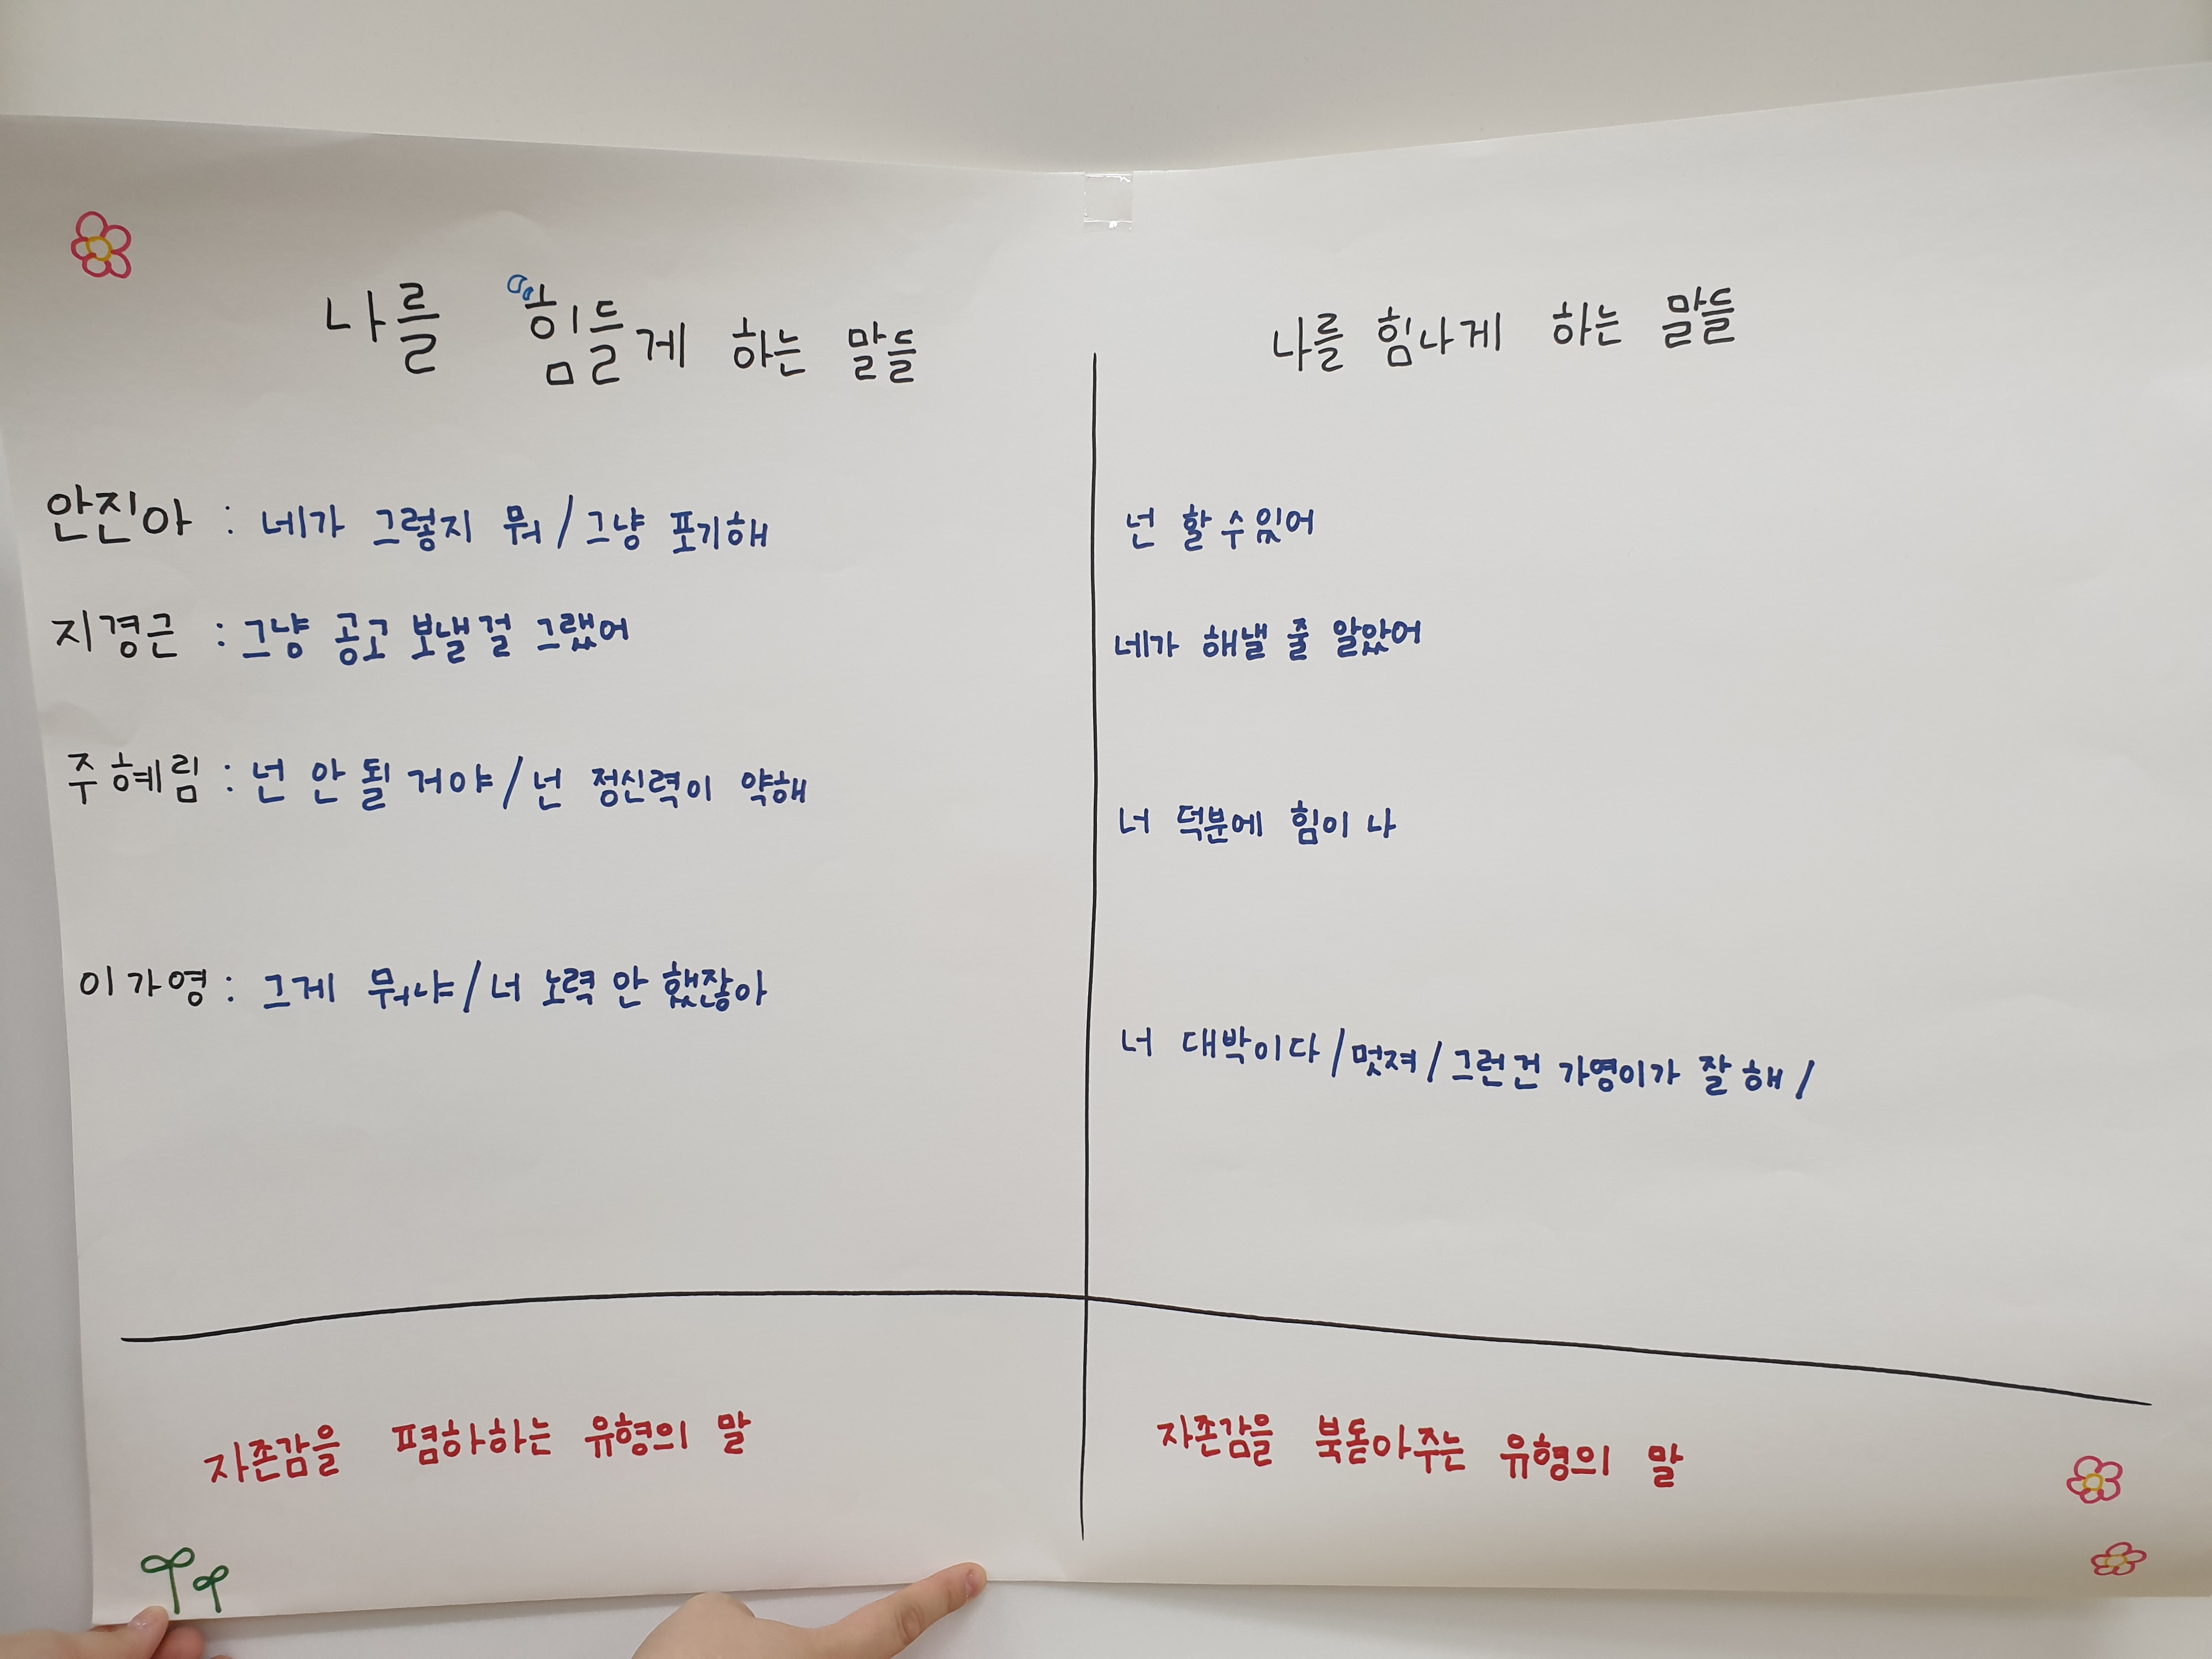 나를 힘들게 하는 말들
안진아 : 네가 그렇지 뭐 / 그냥 포기해
지경근 : 그냥 공고 보낼걸 그랬어
주혜림 : 넌 안 될 거야 / 넌 정신력이 약해
이가영 : 그게 뭐냐 / 너 노력 안 했잖아
자존감을 폄하하는 유형의 말
나를 힘나게 하는 말들
넌 할 수 있어
네가 해낼 줄 알았어
너 덕분에 힘이 나
너 대박이다 / 멋져 / 그런건 가영이가 잘 해 /
자존감을 북돋아주는 유형의 말